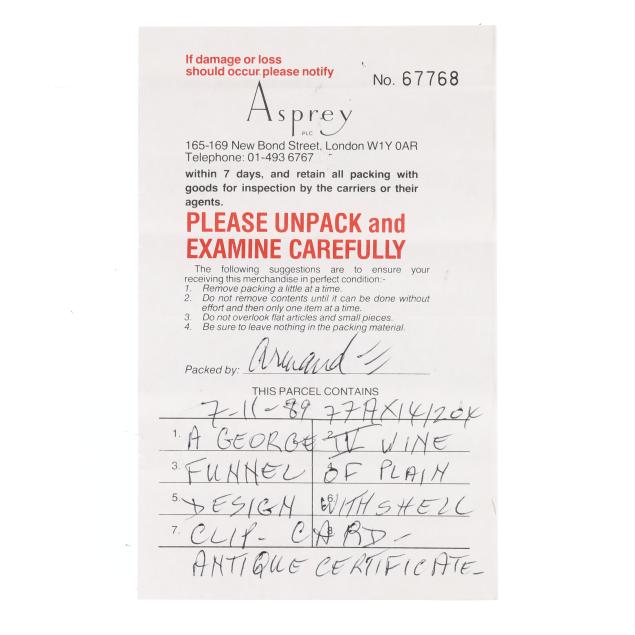 If damage or loss
should occur please notify
No. 67768
Asprey
PLC
165-169 New Bond Street, London W1Y 0AR
Telephone: 01-493 6767
within 7 days, and retain all packing with
goods for inspection by the carriers or their
agents.
PLEASE UNPACK and
EXAMINE CAREFULLY
The following suggestions are to ensure your
receiving this merchandise in perfect condition:-
1. Remove packing a little at a time.
2. Do not remove contents until it can be done without
effort and then only one item at a time.
3. Do not overlook flat articles and small pieces.
4. Be sure to leave nothing in the packing material.
Packed by: Armand
THIS PARCEL CONTAINS
7-11-89
1. A GEORGE 2. IV WINE
3. FUNNEL 4. OF PLAIN
5. DESIGN 6. WITH SHELL
7. CLIP - CARD - 8.
ANTIQUE CERTIFICATE -